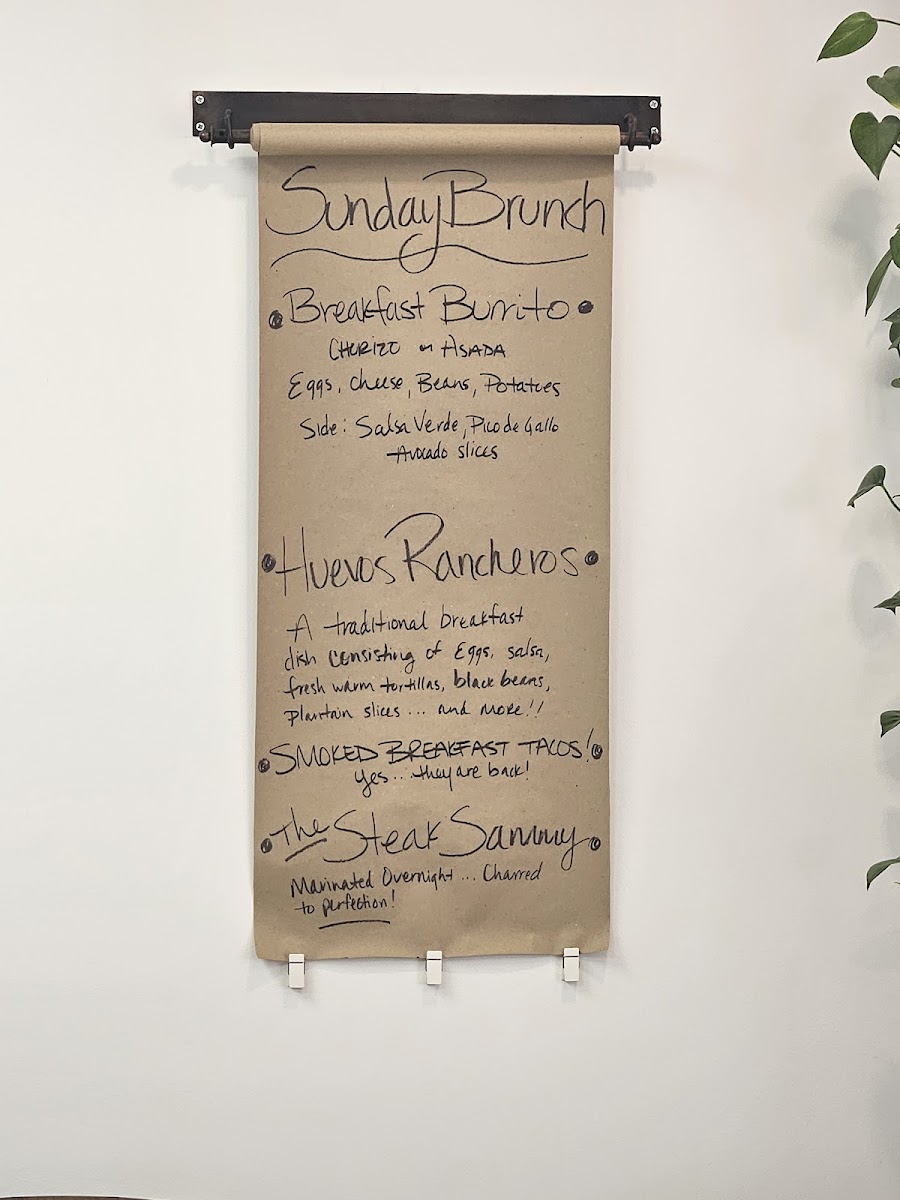 Sunday Brunch
Breakfast Burrito
CHORIZO or ASADA
Eggs, cheese, Beans, Potatoes
Side: Salsa Verde, Pico de Gallo
Avocado slices
Huevos Rancheros
A traditional breakfast
dish consisting of Eggs, salsa,
fresh warm tortillas, black beans,
plantain slices... and more!!
SMOKED BREAKFAST TACOS!
yes... they are back!
The Steak Sammy
Marinated Overnight... Charred
to perfection!